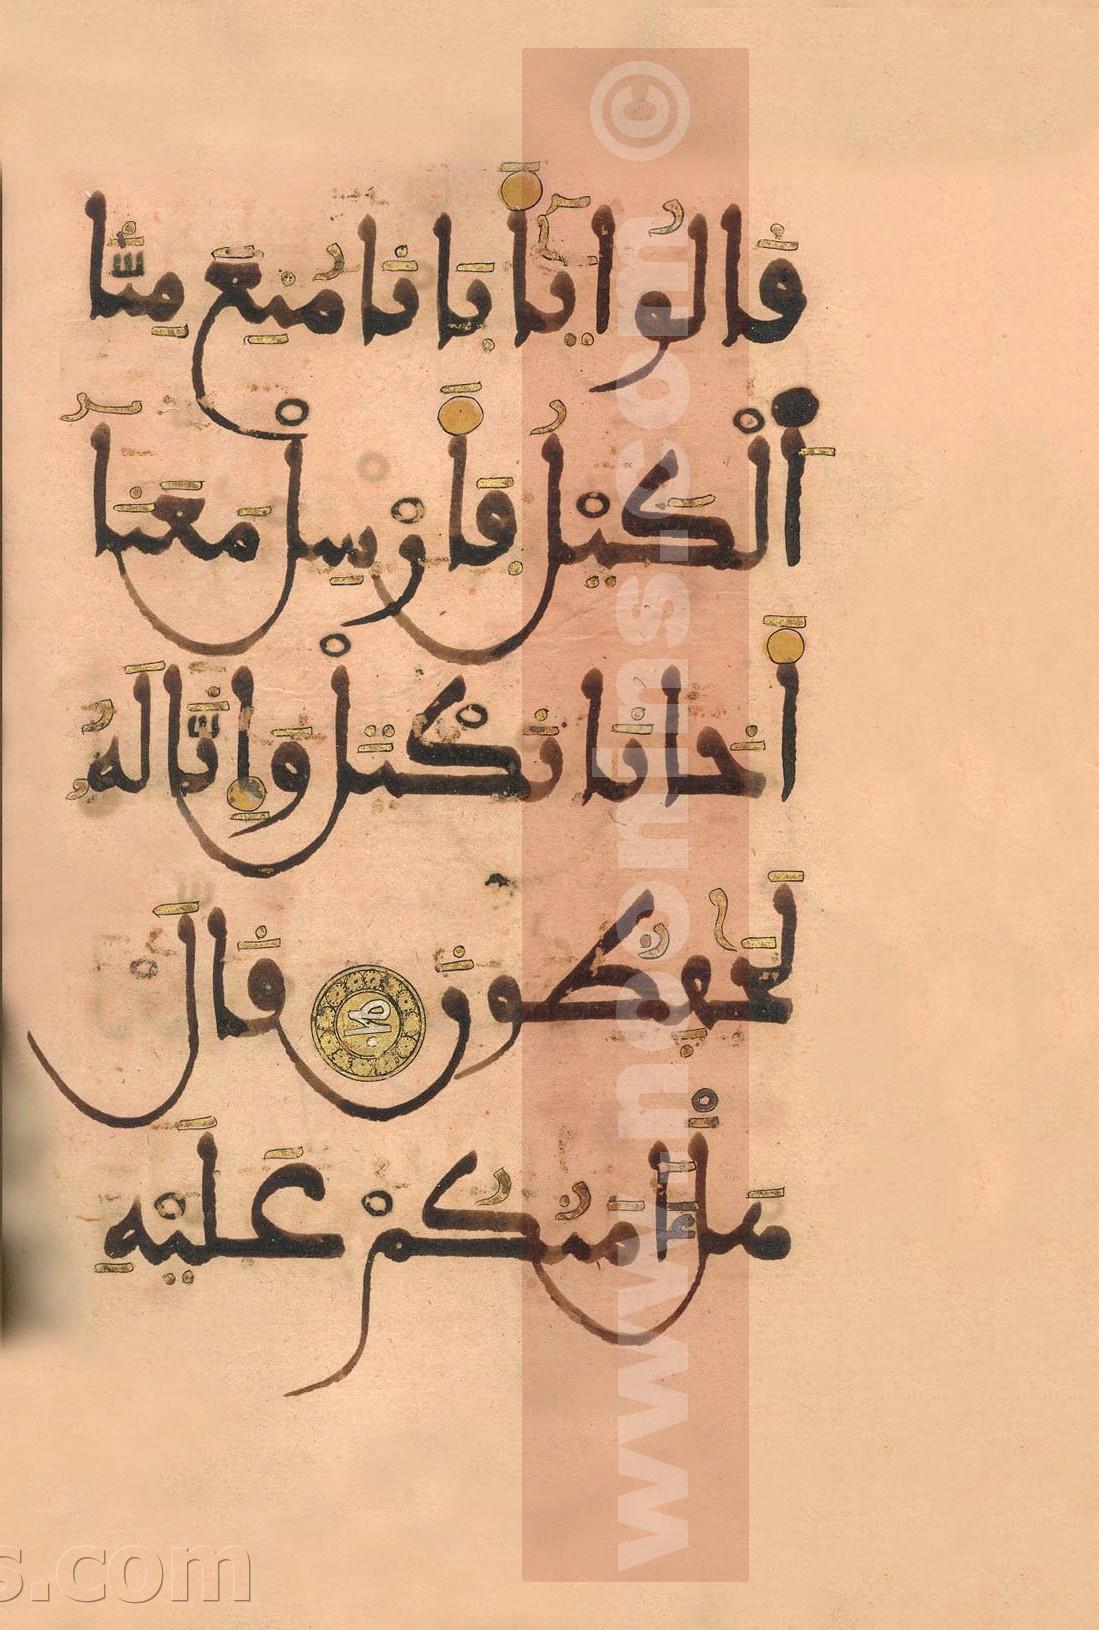 قَالُوا يَٰٓأَبَانَا مُنِعَ مِنَّا
ٱلْكَيْلُ فَأَرْسِلْ مَعَنَآ
أَخَانَا نَكْتَلْ وَإِنَّا لَهُۥ
لَحَٰفِظُونَ قَالَ
هَلْ ءَامَنُكُمْ عَلَيْهِ
www.noonins.com ©
s.com